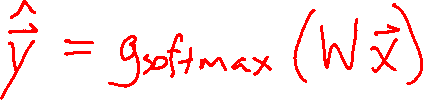 $\hat{\vec{y}} = g_{softmax}(W\vec{x})$